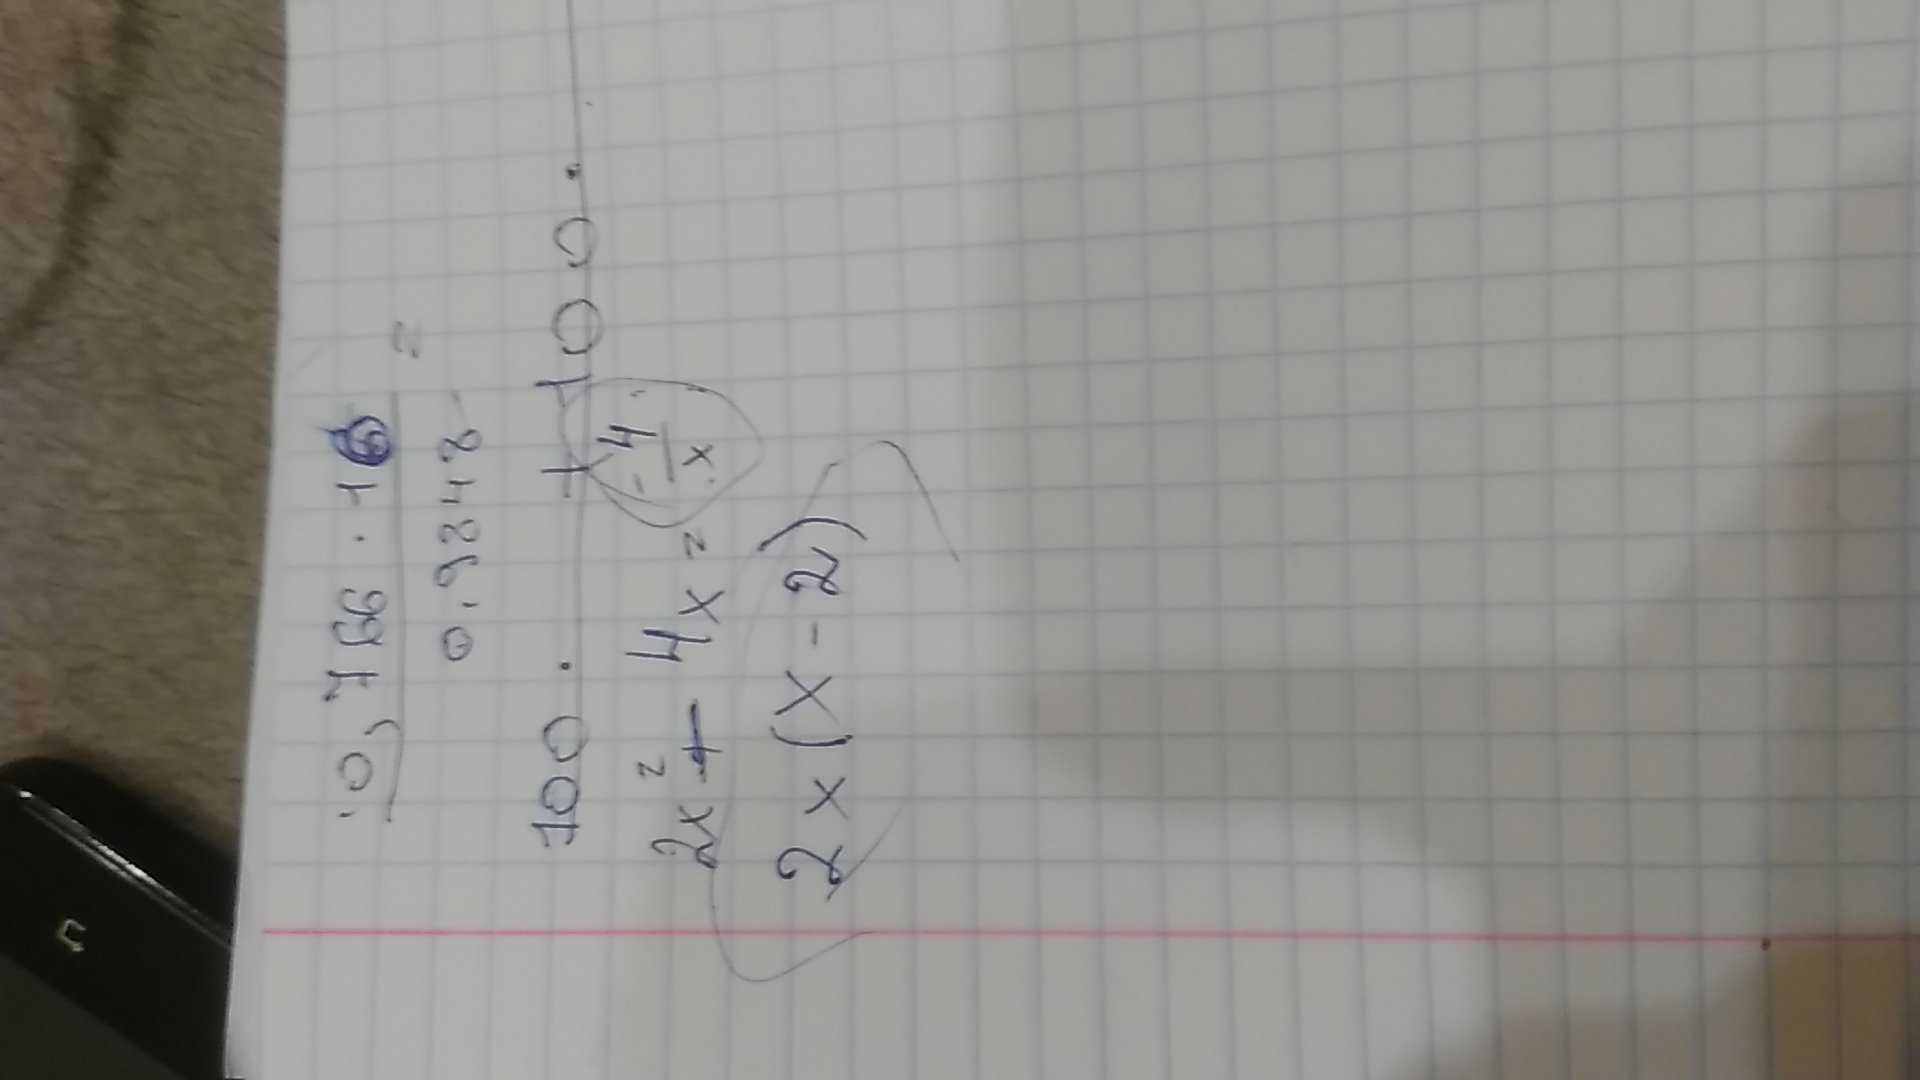 0,766 · 16
0.9848 =
100 · + 100 ·
2x² + 4x² - 4/x
2x(x - 2)